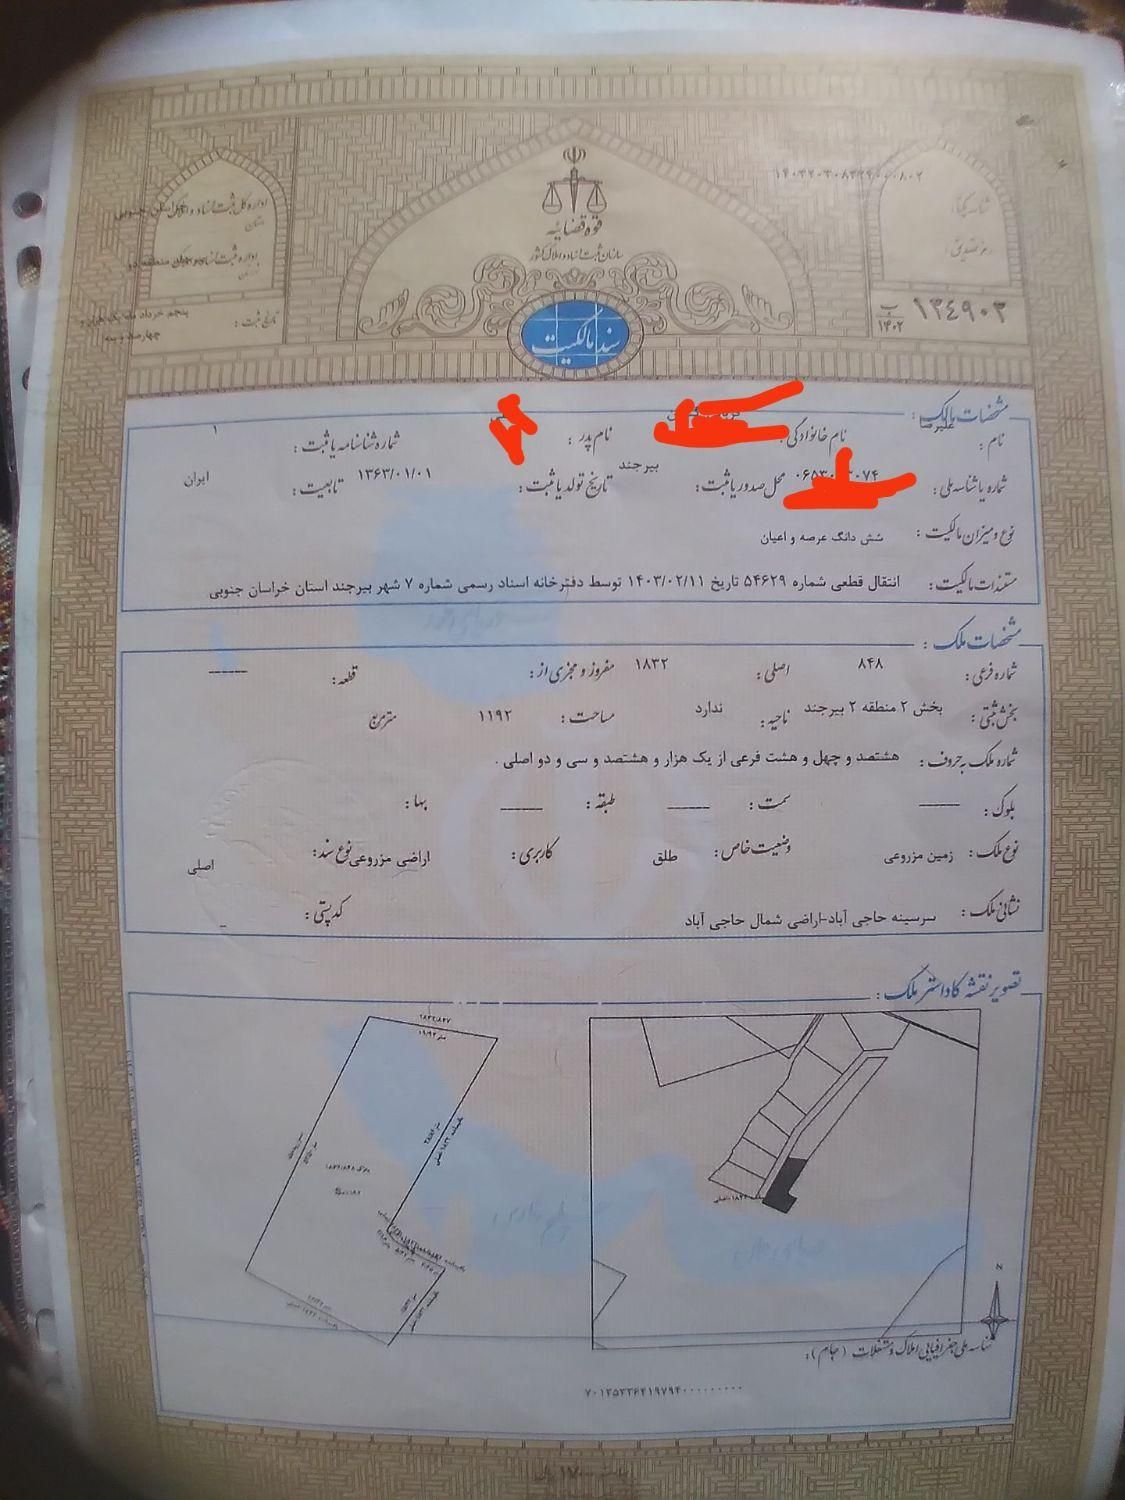 ۱۴۰۳۲۰۳۰۸۳۲۹۰۰۰۸۰۲
شناسه یکتا:
رمز تصدیق:
ب
۱۴۰۲
۱۳۴۹۰۳
قوه قضائیه
سازمان ثبت اسناد و املاک کشور
سند مالکیت
اداره کل ثبت اسناد و املاک خراسان جنوبی
استان
تاریخ ثبت:
پنجم خرداد ماه یک هزار و
چهارصد و سه
مشخصات مالک:
نام: علیرضا نام خانوادگی: نام پدر: شماره شناسنامه یا ثبت: ۱
شماره یا شناسه ملی: محل صدور یا ثبت: بیرجند تاریخ تولد یا ثبت: ۱۳۶۳/۰۱/۰۱ تابعیت: ایران
نوع و میزان مالکیت: شش دانگ عرصه و اعیان
مستندات مالکیت: انتقال قطعی شماره ۵۴۶۲۹ تاریخ ۱۴۰۳/۰۲/۱۱ توسط دفترخانه اسناد رسمی شماره ۷ شهر بیرجند استان خراسان جنوبی
مشخصات ملک:
شماره فرعی: ۸۴۸ اصلی: ۱۸۳۲ مفروز و مجزی از: قطعه:
بخش ثبتی: بخش ۲ منطقه ۲ بیرجند ناحیه: ندارد مساحت: ۱۱۹۲ مترمربع
شماره ملک به حروف: هشتصد و چهل و هشت فرعی از یک هزار و هشتصد و سی و دو اصلی .
بلوک: سمت: طبقه: بها:
نوع ملک: زمین مزروعی وضعیت خاص: طلق کاربری: اراضی مزروعی نوع سند: اصلی
نشانی ملک: سرسینه حاجی آباد-اراضی شمال حاجی آباد کد پستی: _
تصویر نقشه کاداستر ملک:
۱۸۳۲/۸۴۷
۱۸۳۲/۸۴۸
N
شناسه ملی جغرافیایی املاک و مستغلات (جام):